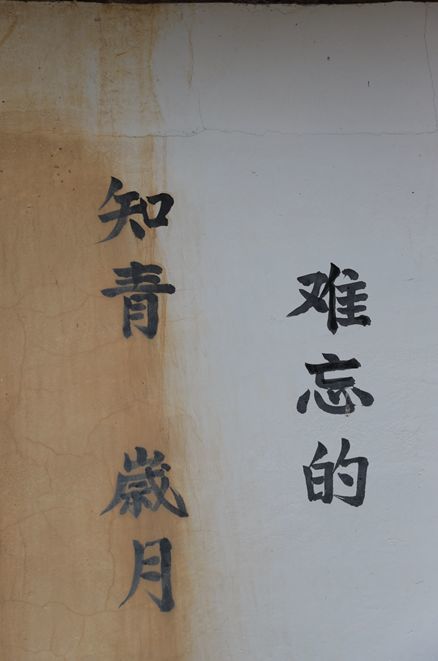 难忘的
知青 歲月